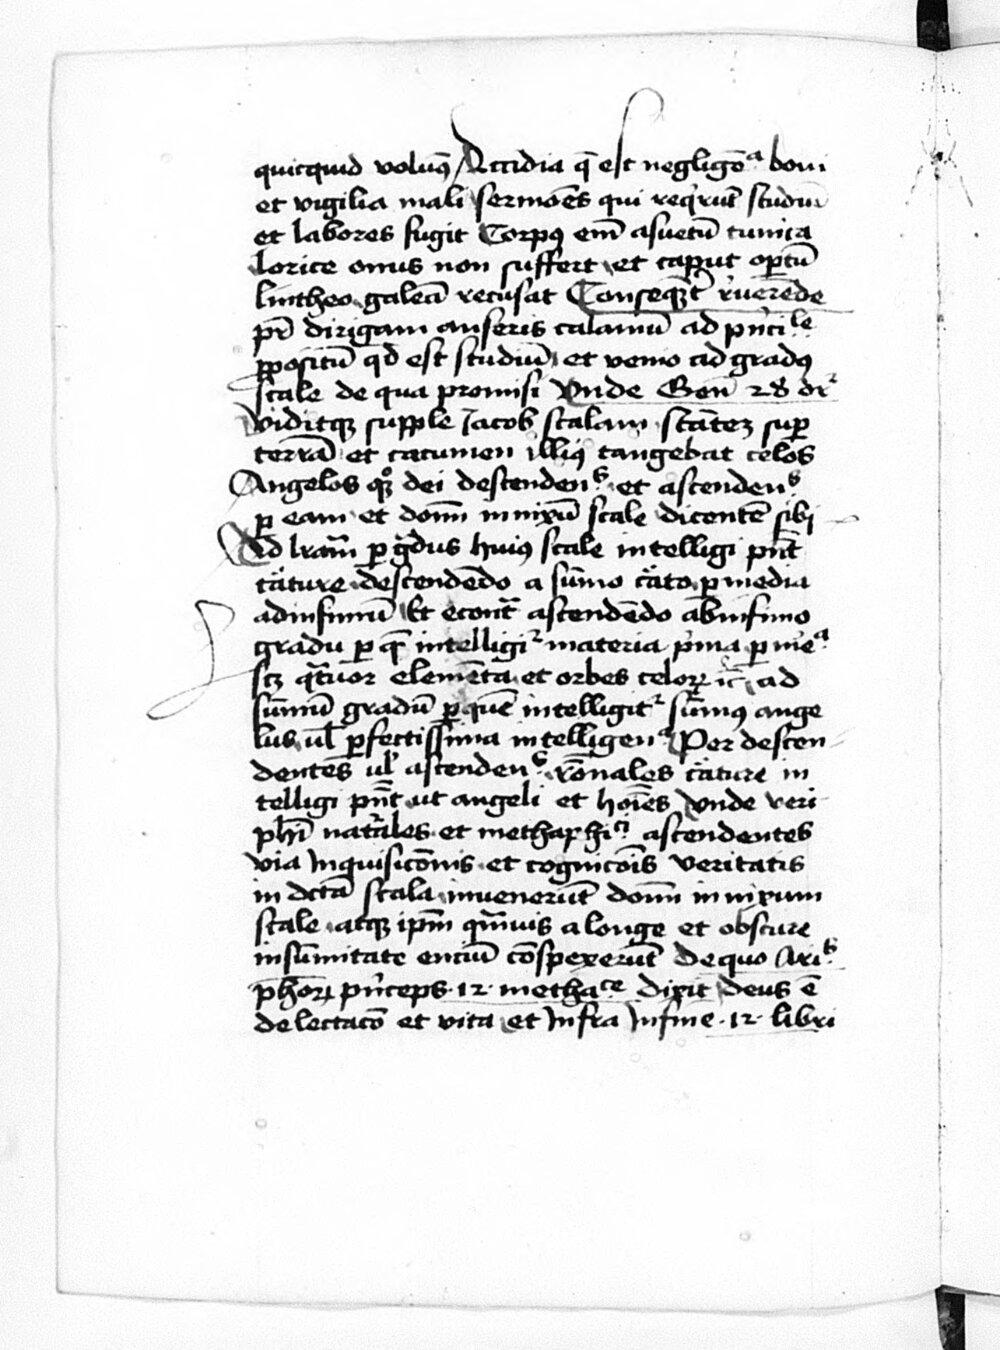 quicquid voluꝰ Accidia q̄ est negligēᵃ boni
et vigilia mali sermōēs qui reqͥrūt studiū
et labores fugit Corpꝰ em̄ asuetū tunica
lorice onus non suffert et caput opͤtū
lintheo galeā recusat Conseqͣt̄ rͥuerēde
pr̄ dirigam anseris calamū ad pͥnciˡᵉ
ꝓpositū qd̄ est studiū et venio ad gradꝰ
scale de qua promisi Vnde Gen̄ 28 dr̄
Viditqꝫ supple Jacob scalam stātēꝫ suꝑ
terrā et cacumen illiꝰ tangebat celos
Angelos qꝫ dei descendenˢ et ascendenˢ
ꝑ eam et domī innixū scale dicentē sibi
Ad lrām ꝑ gͣdus huiꝰ scale intelligi pn̄t
c͛ature descendēdo a sūmo c͛ato ꝑ media
ad infimū Et econtͣ ascendēdo ab infimo
gradu ꝑ qē intelligiᵗ materia pͥma ꝑ meᵃ
scꝫ qͣtuor elemēta et orbes celoꝝ ic̄ ad
sūmū gradū ꝑ quē intelligitᵗ sūmꝰ ange
lus vl̄ ꝑfectissima intelligenᵃ Per descen-
dentes vl̄ ascendenˢ rōnales c͛ature in
telligi pn̄t ut angeli et hoīes Vnde veri
phī natͣles et methaphiᶜⁱ ascendentes
via inquisicōnis et cognicōīs veritatis
in dctā scala invenerūt domī innixum
scale atqꝫ ipm̄ qͣmvis a longe et obscure
in sūmitate enciū cōspexerūt de quo Ariˢ
phōꝝ pͥnceps 12 methaᶜᵉ dixit deus ē
delectacō et vita et infra in fine 12 libri